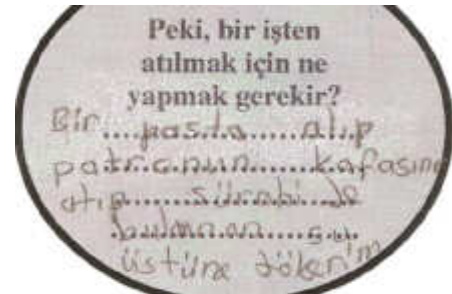 Peki, bir işten
atılmak için ne
yapmak gerekir?
Bir....pasta.....alıp
patronun.......kafasına
atıp......sürahi..de
bulunan....su
üstüne dökerim